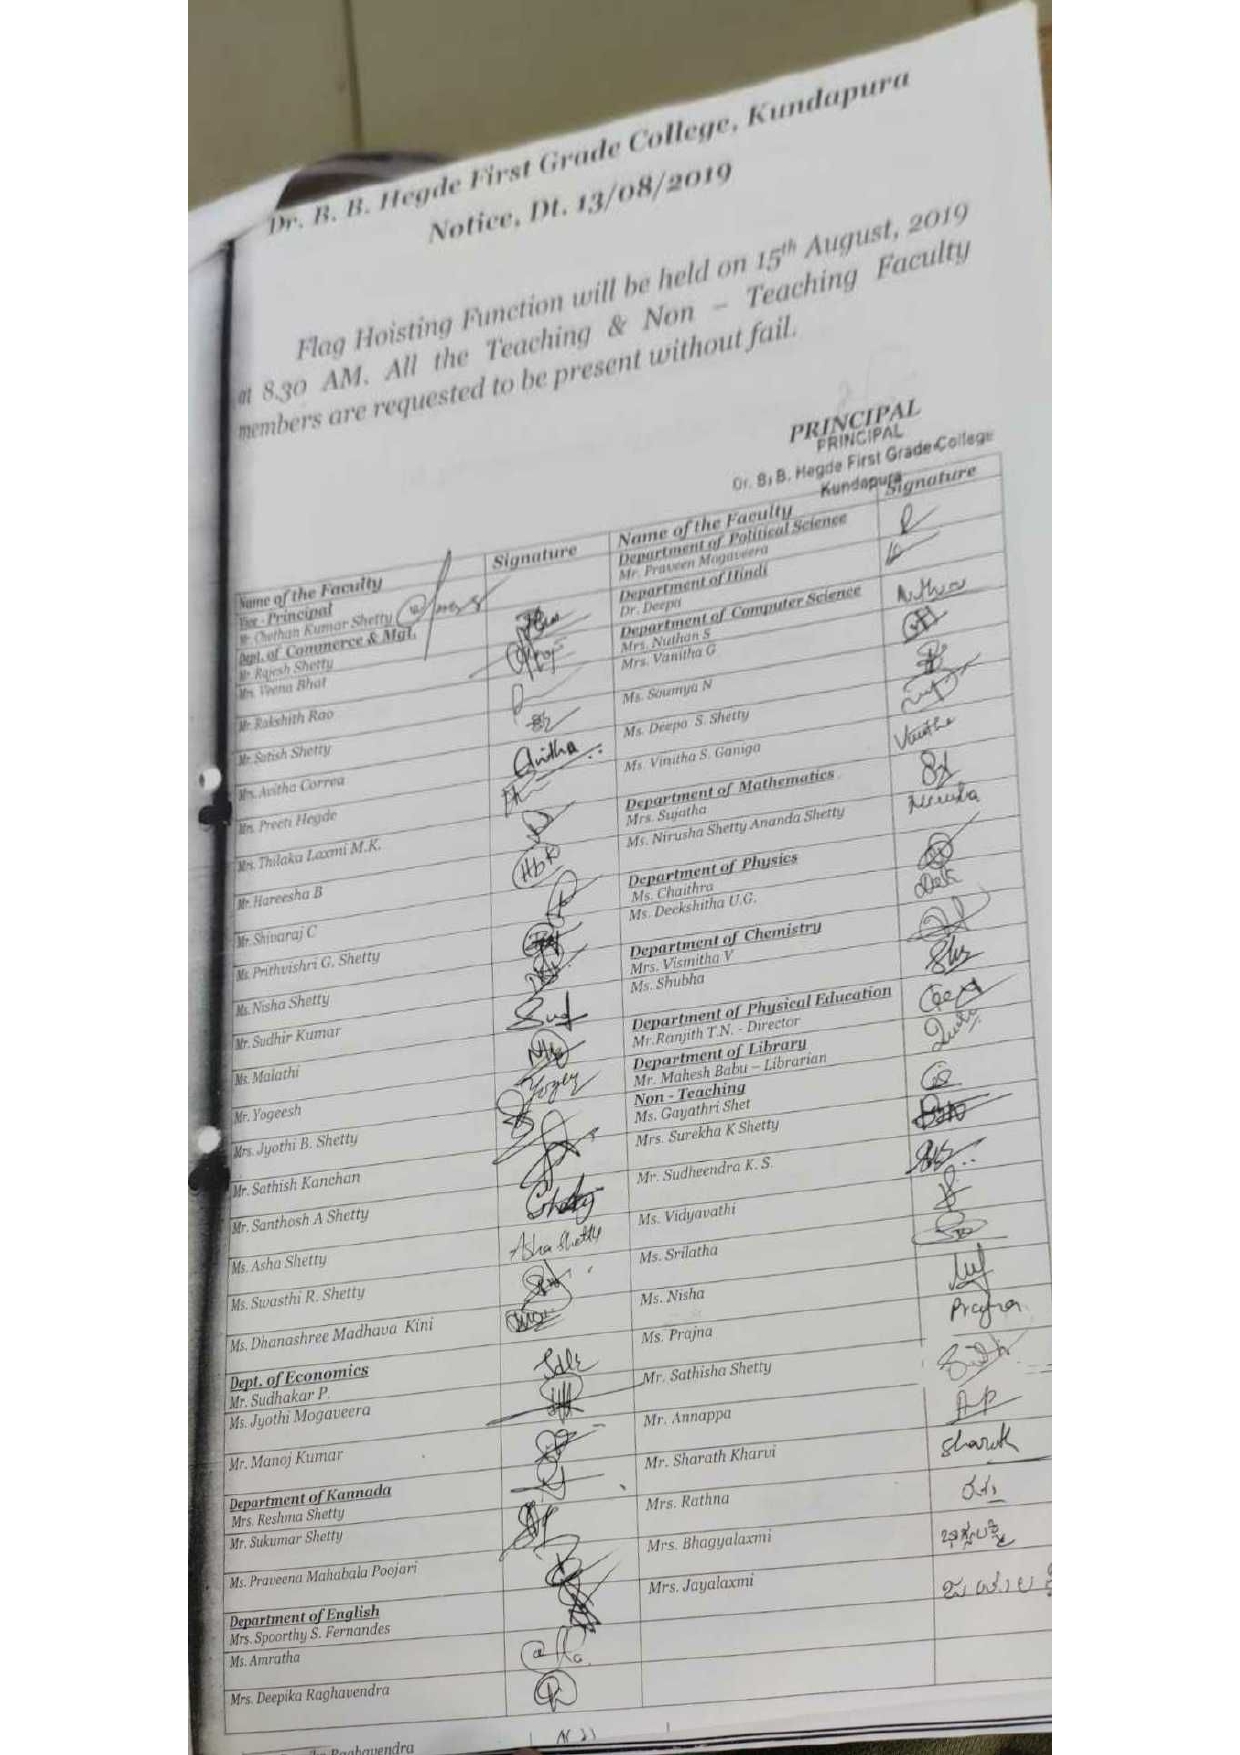 Dr. B. B. Hegde First Grade College, Kundapura
Notice, Dt. 13/08/2019
Flag Hoisting Function will be held on 15th August, 2019
at 8.30 AM. All the Teaching & Non – Teaching Faculty
members are requested to be present without fail.
PRINCIPAL
PRINCIPAL
Dr. B. B. Hegde First Grade College
Kundapura
Name of the Faculty
Signature
Vice - Principal
Mr. Chethan Kumar Shetty
Dept. of Commerce & Mgt.
Mr. Rajesh Shetty
Mrs. Veena Bhat
Mr. Rakshith Rao
Mr. Satish Shetty
Mrs. Avitha Correa
Avitha
Mrs. Preeti Hegde
Mrs. Thilaka Laxmi M.K.
Mr. Hareesha B
HbK
Mr. Shivaraj C
Ms. Prithvishri G. Shetty
Ms. Nisha Shetty
Mr. Sudhir Kumar
Ms. Malathi
Mr. Yogeesh
Mrs. Jyothi B. Shetty
Mr. Sathish Kanchan
Mr. Santhosh A Shetty
Ms. Asha Shetty
Asha Shetty
Ms. Swasthi R. Shetty
Ms. Dhanashree Madhava Kini
Dept. of Economics
Mr. Sudhakar P.
Ms. Jyothi Mogaveera
Mr. Manoj Kumar
Department of Kannada
Mrs. Reshma Shetty
Mr. Sukumar Shetty
Ms. Praveena Mahabala Poojari
Department of English
Mrs. Spoorthy S. Fernandes
Ms. Amratha
Mrs. Deepika Raghavendra
Name of the Faculty
Signature
Department of Political Science
Mr. Praveen Mogaveera
Department of Hindi
Dr. Deepa
Department of Computer Science
Mrs. Nuthan S
Mrs. Vanitha G
Ms. Soumya N
Ms. Deepa S. Shetty
Ms. Vinitha S. Ganiga
Department of Mathematics
Mrs. Sujatha
Ms. Nirusha Shetty Ananda Shetty
Department of Physics
Ms. Chaithra
Ms. Deekshitha U.G.
Department of Chemistry
Mrs. Vismitha V
Ms. Shubha
Department of Physical Education
Mr. Ranjith T.N. - Director
Department of Library
Mr. Mahesh Babu – Librarian
Non - Teaching
Ms. Gayathri Shet
Mrs. Surekha K Shetty
Mr. Sudheendra K. S.
Ms. Vidyavathi
Ms. Srilatha
Ms. Nisha
Ms. Prajna
Prajna
Mr. Sathisha Shetty
Mr. Annappa
AP
Mr. Sharath Kharvi
Sharath
Mrs. Rathna
Mrs. Bhagyalaxmi
Mrs. Jayalaxmi
Raghavendra